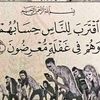 بِسْمِ ٱللَّهِ ٱلرَّحْمَٰنِ ٱلرَّحِيمِ
ٱقْتَرَبَ لِلنَّاسِ حِسَابُهُمْ
وَهُمْ فِى غَفْلَةٍ مُّعْرِضُونَ